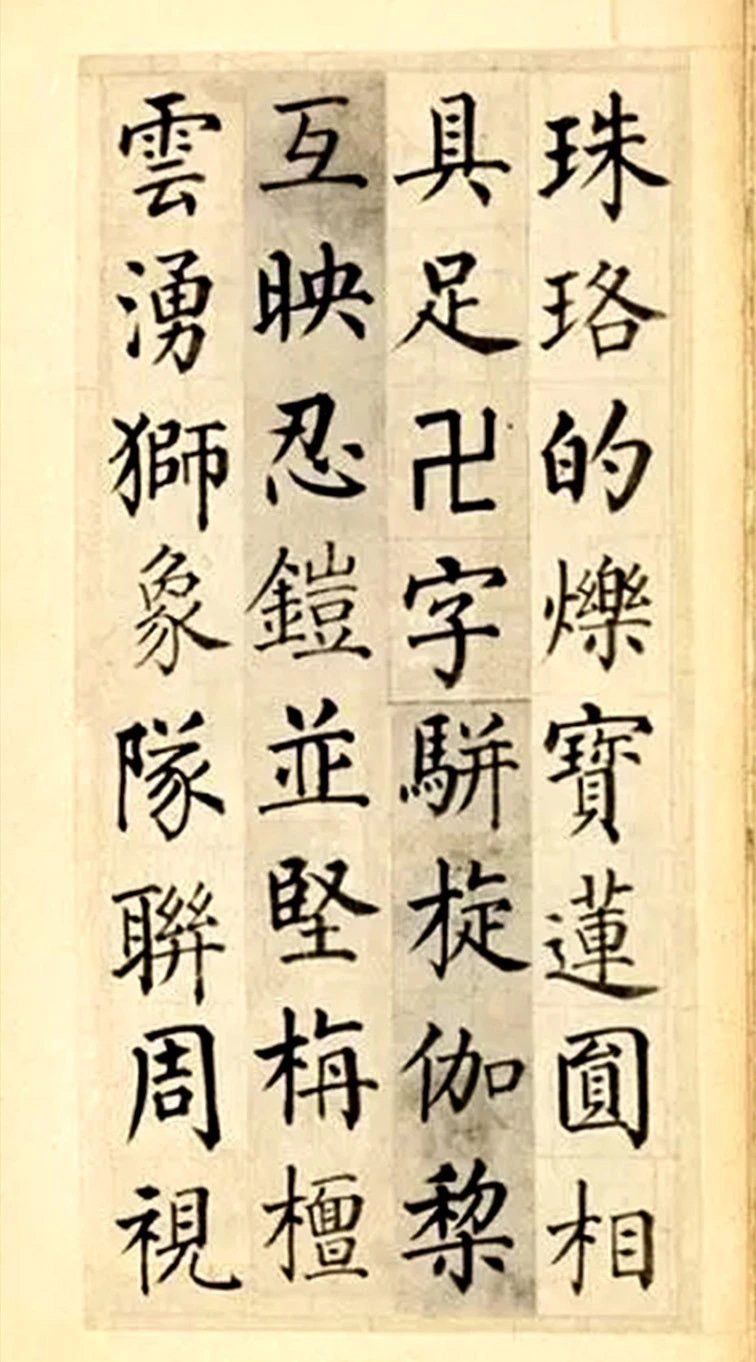 珠珞的爍寶蓮圓相
具足卍字駢旋伽黎
互映忍鎧並堅栴檀
雲湧獅象隊聯周視